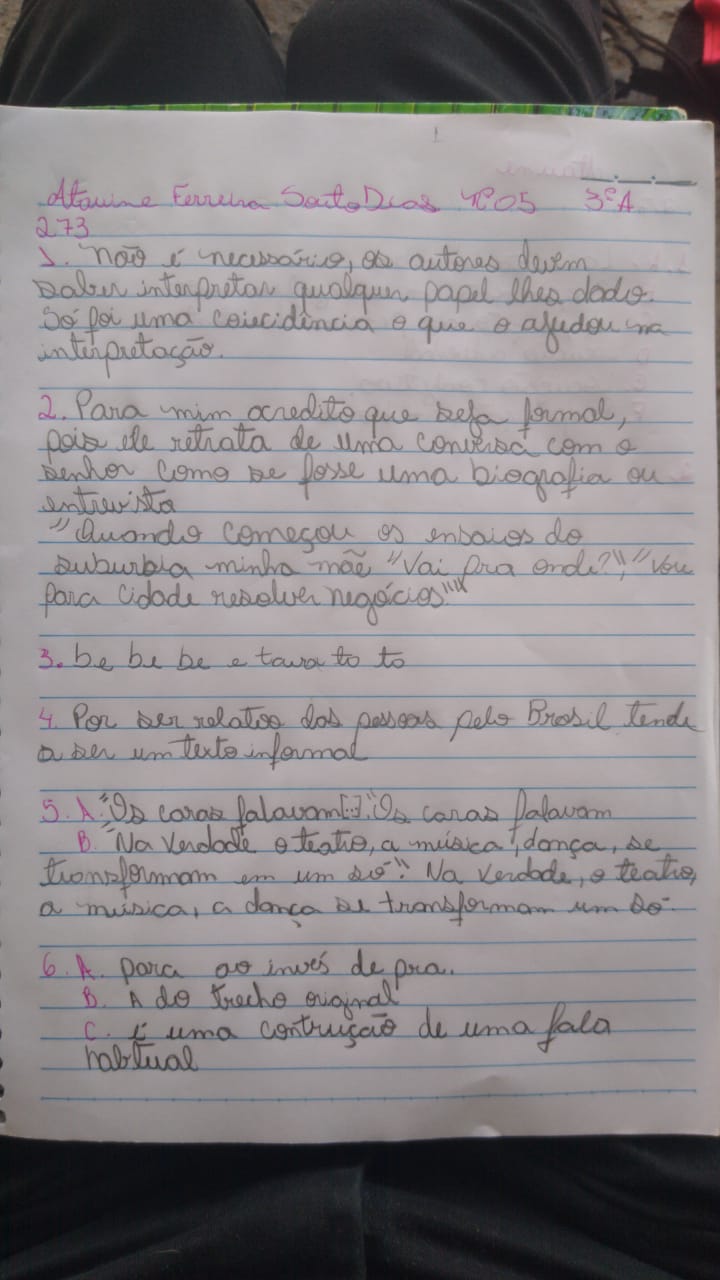 Ferreira Santo Dias Nº05 3ºA
273
1. Não é necessário, os autores devem
saber interpretar qualquer papel lhes dado.
Só foi uma coiecidência o que o ajudou na
interpretação.
2. Para mim acredito que seja formal,
pois ele retrata de uma conversa com o
senhor como se fosse uma biografia ou
entrevista
"Quando começou os ensaios do
suburbia minha mãe "Vai pra onde?", "Vou
para cidade resolver negócios.""
3. be be be e tava to to
4. Por ser relatos das pessoas pelo Brasil tende
a ser um texto informal
5. A. "Os caras falavam[...]". Os caras falavam
B. "Na verdade o teatro, a música, dança, se
transformam em um só". Na verdade, o teatro,
a música, a dança se transformam um só.
6. A. para ao invés de pra.
B. A do trecho original
C. É uma contrução de uma fala
habtual